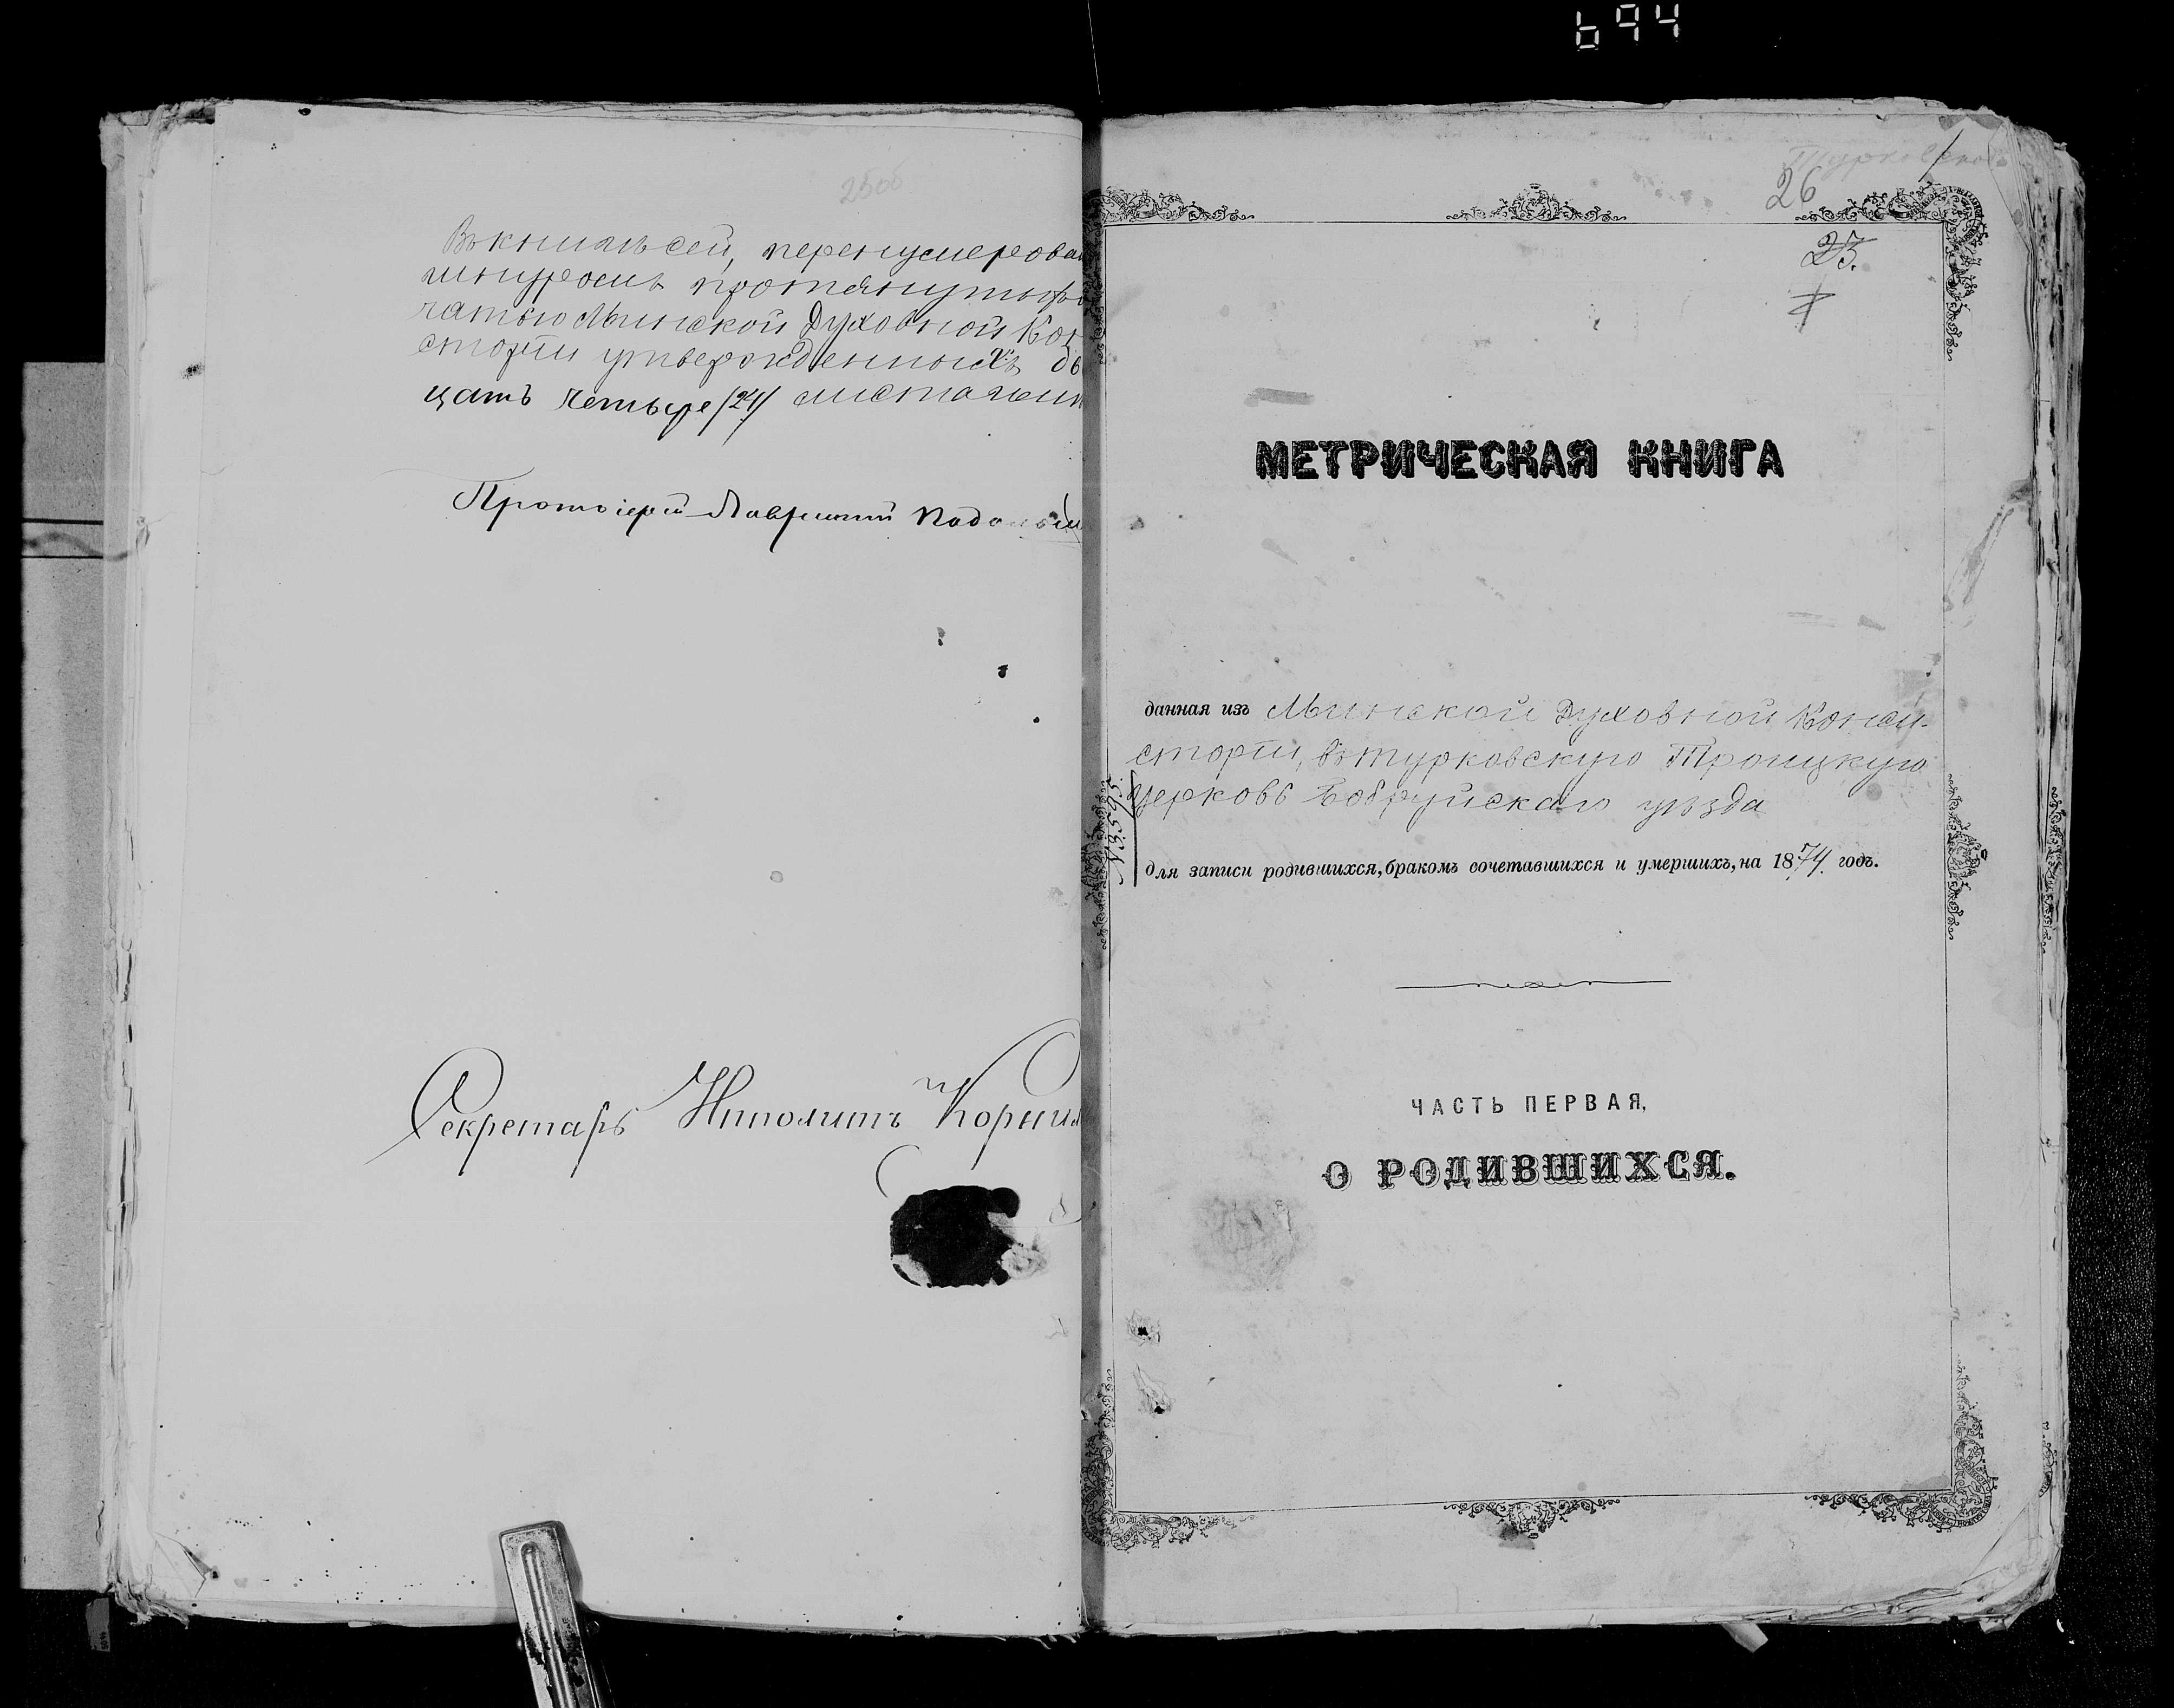 694
25об
Въ книгѣ сей, перенумерован
шнуромъ протянутыхъ
чатью Минской Духовной Кон
сторіи утвержденныхъ дв
цать четыре /24/ листа
Протоіерей
Секретарь Иполитъ Корнил
26
23.
МЕТРИЧЕСКАЯ КНИГА
данная изъ Минской Духовной Конси-
сторіи, въ Турковскую Троицкую
церковь Бобруйскаго уѣзда
№3595
для записи родившихся, бракомъ сочетавшихся и умершихъ, на 1874. годъ.
ЧАСТЬ ПЕРВАЯ,
О РОДИВШИХСЯ.